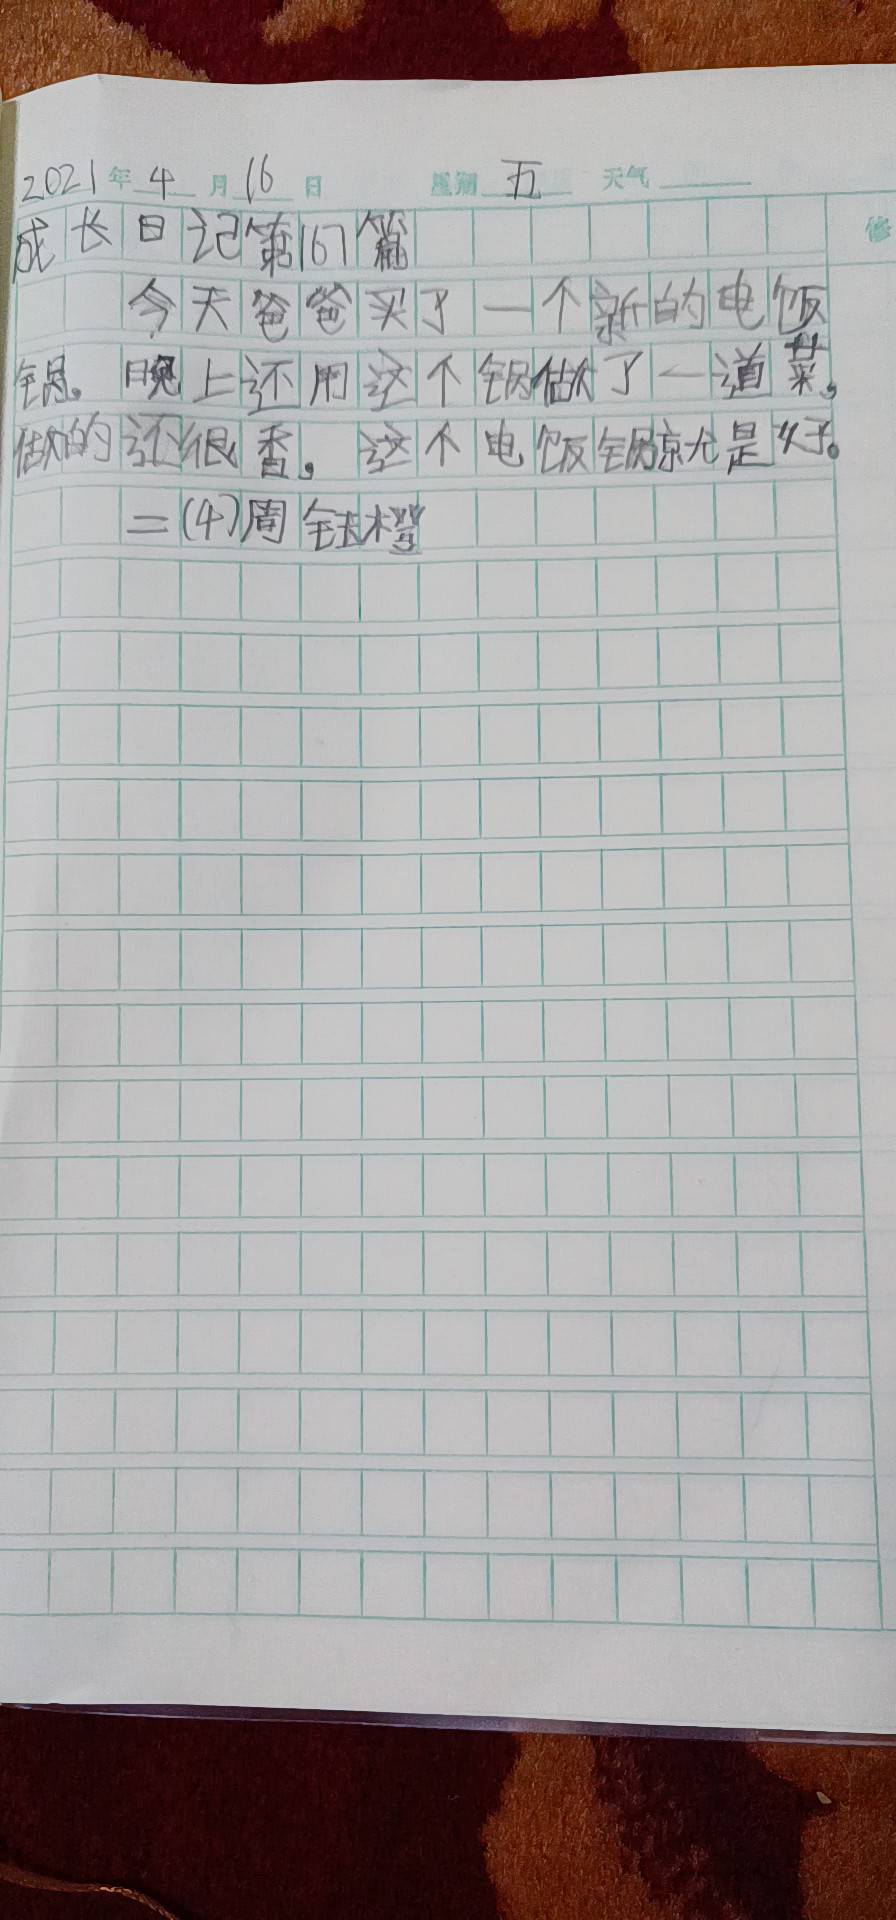 2021年4月16日 星期五 天气
成长日记第167篇
修
今天爸爸买了一个新的电饭
锅。晚上还用这个锅做了一道菜,
做的还很香。这个电饭锅就是好。
二(4)周